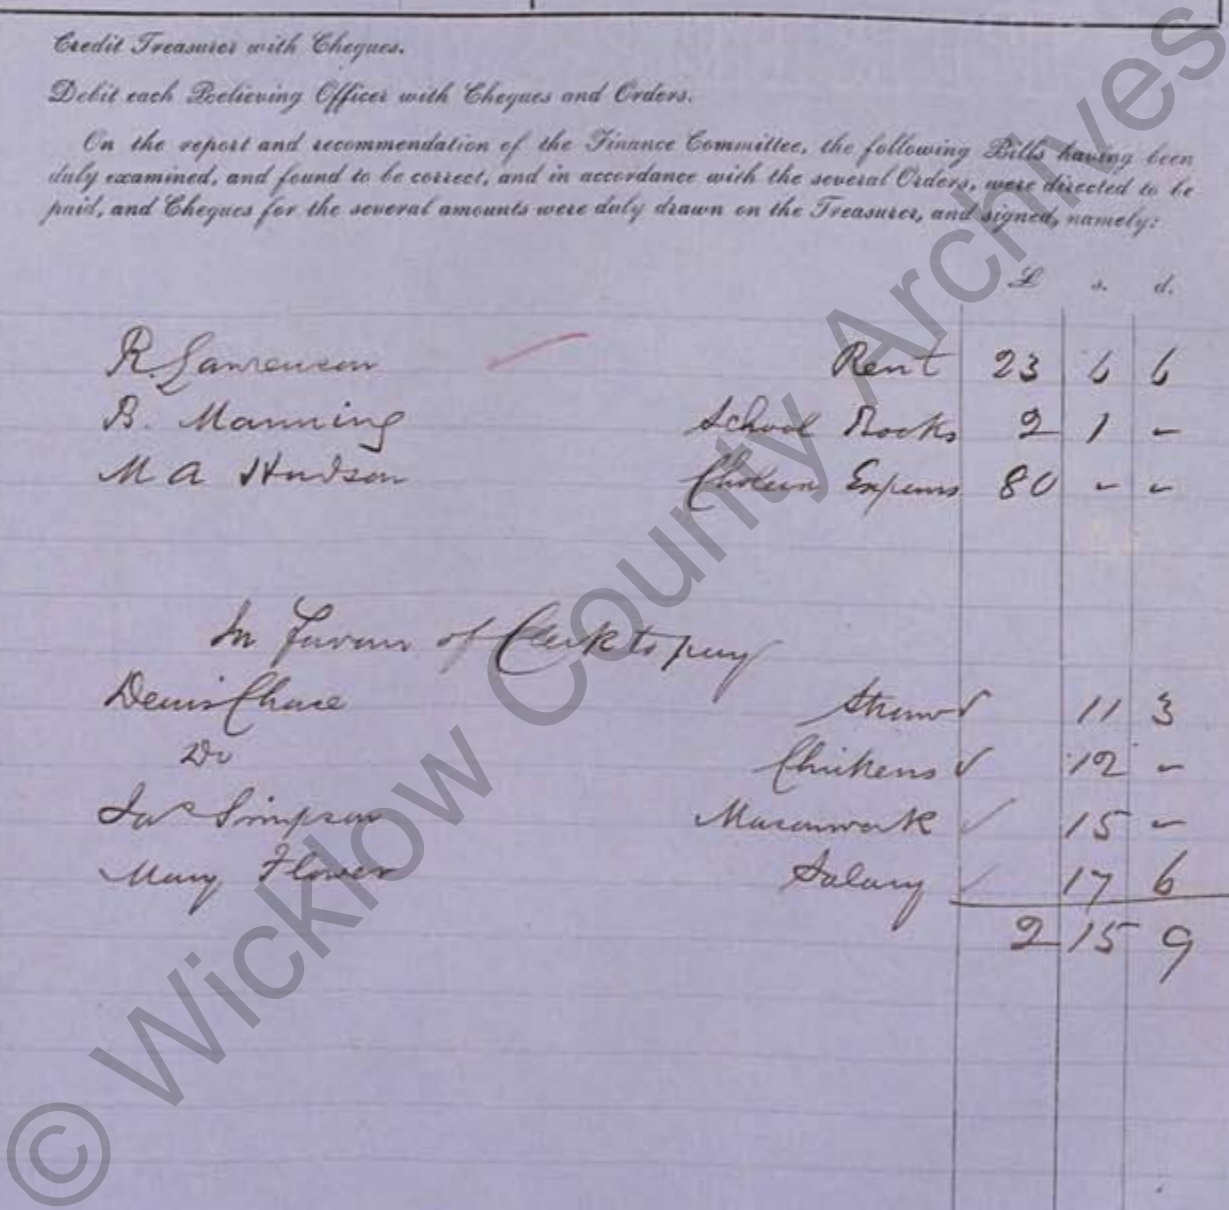 Credit Treasurer with Cheques.
Debit each Relieving Officer with Cheques and Orders.
On the report and recommendation of the Finance Committee, the following Bills having been
duly examined, and found to be correct, and in accordance with the several Orders, were directed to be
paid, and Cheques for the several amounts were duly drawn on the Treasurer, and signed, namely:
£ s. d.
R. Lawrenson Rent 23 6 6
B. Manning School Books 2 1 -
M A Hudson Cholera Expenses 80 - -
In Favour of Clerk to pay
Denis Chace Straw 11 3
Do Chickens 12 -
Jas Simpson Masonwork 15 -
Mary Flower Salary 17 6
2 15 9
© Wicklow County Archives